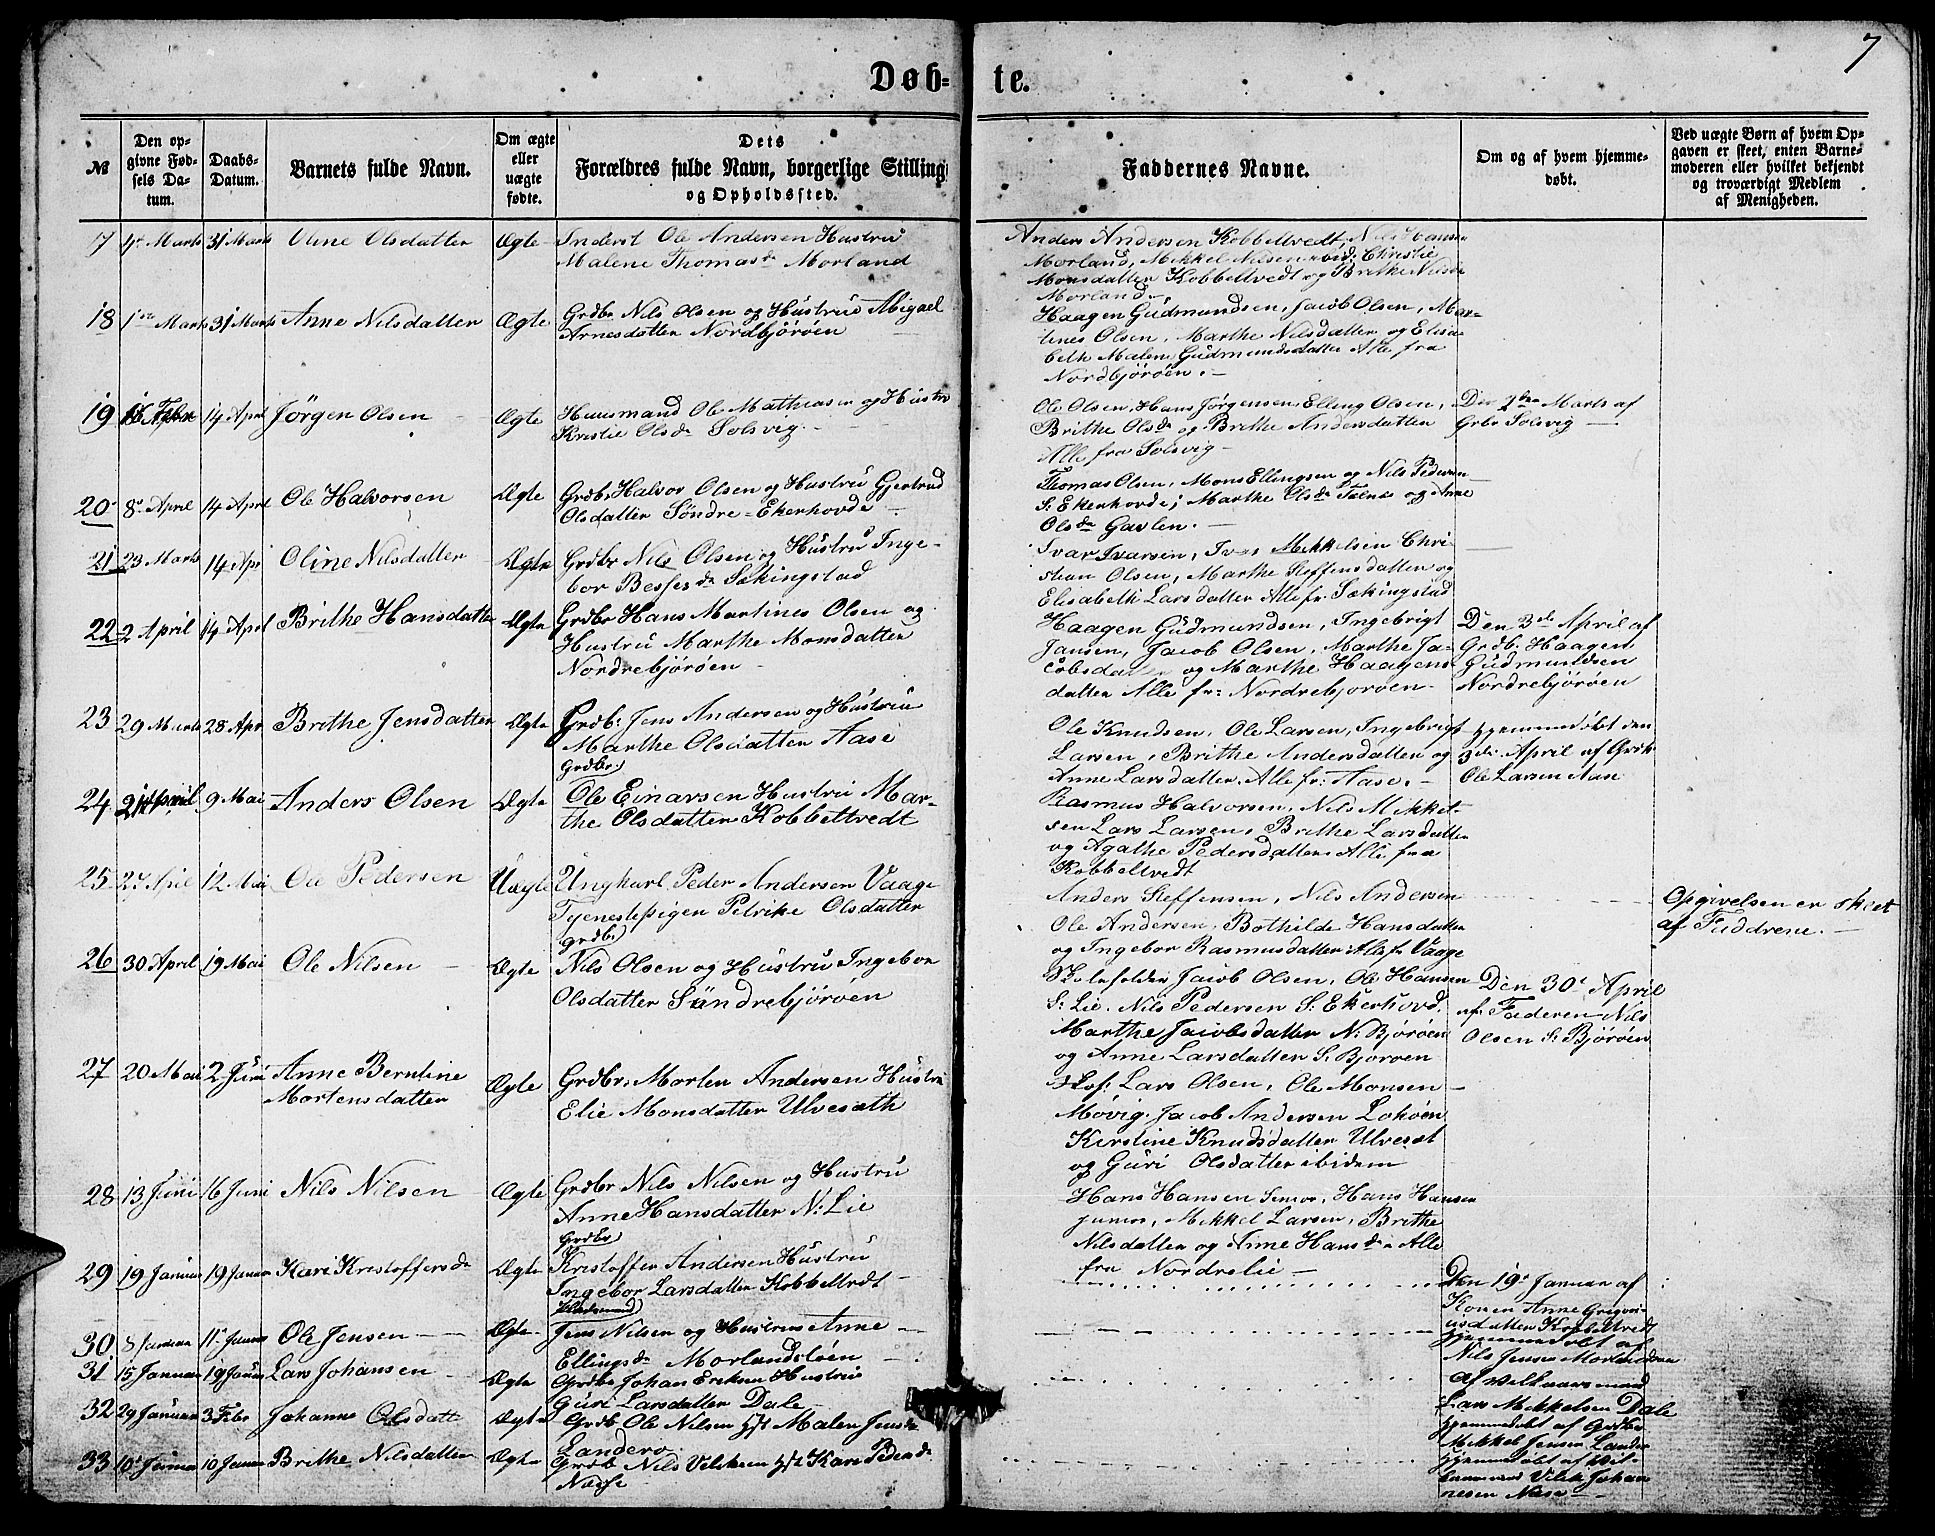 7
Døb-
te.
№
Den op-
givne Fød-
sels Da-
tum.
Daabs-
Datum.
Barnets fulde Navn.
Om ægte
eller
uægte
fødte.
Dets
Forældres fulde Navn, borgerlige Stilling
og Opholdssted.
Faddernes Navne.
Om og af hvem hjemme-
døbt.
Ved uægte Børn af hvem Op-
gaven er skeet, enten Barne-
moderen eller hvilket bekjendt
og troværdigt Medlem
af Menigheden.
17 4de Marts 31 Marts Oline Olsdatter Ægte Inderst Ole Andersen Hustru
Malene Thomasdr Morland
Anders Andersen Kobbeltvedt, Nils Hansen
Morland, Mikkel Nilsen Christie
Monsdatter Kobbeltvedt og Brithe Nilsdr
Morland.
18 1ste Marts 31 Marts Anne Nilsdatter Ægte Grdbr Nils Olsen og Hustrue Abigael
Arnesdatter Nordbjöröen
Haagen Gudmundsen, Jacob Olsen, Mar-
tines Olsen, Marthe Nilsdatter og Elisa-
beth Malene Gudmundsdatter Alle fra
Nordbjöröen.
19 Febr 14 Aprl Jörgen Olsen Ægte Huusmand Ole Mathiasen og Hustru
Kristie Olsdr Solsvig
Ole Olsen, Hans Jörgensen, Elling Olsen,
Brithe Olsdr og Brithe Andersdatter
Alle fra Solsvig
Den 2den Marts af
Grbr Solsvig
20 8de April 14 Aprl Ole Halvorsen Ægte Grdbr Halvor Olsen og Hustru Gjertrud
Olsdatter Söndre-Ekerhovde
Thomas Olsen, Mons Ellingsen og Nils Pedersen
S: Ekerhovde; Marthe Olsdr og Anne
Olsdr Gavlen.
21 23 Marts 14 Apr Oline Nilsdatter Ægte Grdbr Nils Olsen og Hustru Inge-
bor Skingstad
Ivar Ivarsen, Iver Mikkelsen Chri-
stian Olsen, Marthe Steffensdatter og
Elisabeth Larsdatter Alle fr: Skingstad
22 2 April 14 Aprl Brithe Hansdatter Ægte Grdbr Hans Martines Olsen og
Hustru Marthe Monsdatter
Nordrebjöröen
Haagen Gudmundsen, Ingebrigt
Jansen, Jacob Olsen, Marthe Ja-
cobsdatter og Marthe Haagens-
datter Alle fr: Nordrebjoroen
Den 3die April af
Grdb: Haagen
Gudmundsen
Nordrebjöröen
23 29 Marts 28 Apr Brithe Jensdatter Ægte Grdbr: Jens Andersen og Hustru
Marthe Olsdatter Aase
Ole Knudsen, Ole Larsen, Ingebrigt
Larsen, Brithe Andersdatter og
Anne Larsdatter. Alle fr: Aase.
Hjemmedøbt den
3die April af Grdb
Ole Larsen Aase
24 21 April 9 Mai Anders Olsen Ægte Grdbr
Ole Einarsen Hustru Mar-
the Olsdatter Kobbeltvedt
Rasmus Halvorsen, Nils Mikkel-
sen Lars Larsen, Brithe Larsdatter
og Agathe Pedersdatter Alle fra
Kobbeltvedt
25 27 April 12 Mai Ole Pedersen Uægte Ungkarl Peder Andersen Vaage
Tjenestepigen Petrike Olsdatter
Anders Steffensen, Nils Andersen
Ole Andersen, Bothilde Hansdatter
og Ingebor Rasmusdatter Alle fr Vaage
Opgivelsen er skeet
af Faddrene.
26 30 April 19 Mai Ole Nilsen Ægte Grdbr
Nils Olsen og Hustru Ingebor
Olsdatter Söndrebjöröen
Skoleholder Jacob Olsen, Ole Hansen
S: Lie. Nils Pedersen S: Ekerhovd,
Marthe Jacobsdatter N: Björöen
og Anne Larsdatter S: Bjoroen
Den 30te April
af Faderen Nils
Olsen S: Björöen
27 20 Mai 2 Juni Anne Berntine
Mortensdatter Ægte Grdbr: Morten Andersen Hustru
Elie Monsdatter Ulvesæth
Lars Olsen, Ole Monsen
Mövig, Jacob Andersen Lokøen
Kirstine Knudsdatter Ulveset
og Guri Olsdatter ibidem
28 13 Juni 16 Juni Nils Nilsen Ægte Grdbr Nils Nilsen og Hustru
Anne Hansdatter N: Lie
Hans Hansen Senior, Hans Hansen
junior, Mikkel Larsen, Brithe
Nilsdatter og Anne Hansdr Alle
fra Nordrelie
29 19 Januar 19 Januar Kari Kristoffersdr Ægte Grdbr
Kristoffer Andersen Hustru
Ingebor Larsdatter Kobbeltvedt
Den 19de Januar af
Konen Anne Gregori-
usdatter Kobbeltvedt
30 8 Januar 11te Januar Ole Jensen Ægte Huusmand
Jens Nilsen og Hustru Anne
Ellingsdr Morlandstöen
Hjemmedøbt af
Nils Jensen
31 15 Januar 19 Januar Lars Johansen Ægte Grdbr Johan Eriksen Hustru
Guri Larsdatter Dale
Af Vidnesmand
Lars Mikkelsen Dale
32 29 Januar 3 Febr Johanne Olsdatter Ægte Grdb Ole Nilsen Hst Malene Jensdr
Landero
Hjemmedøbt af Grdbr
Mikkel Jensen Landro
33 10de Januar 10 Januar Brithe Nilsdatter Ægte Grdb Nils Hst Kari Pedersdr
Næsse
Hjemmedøbt af
Johan-
nesen Næse